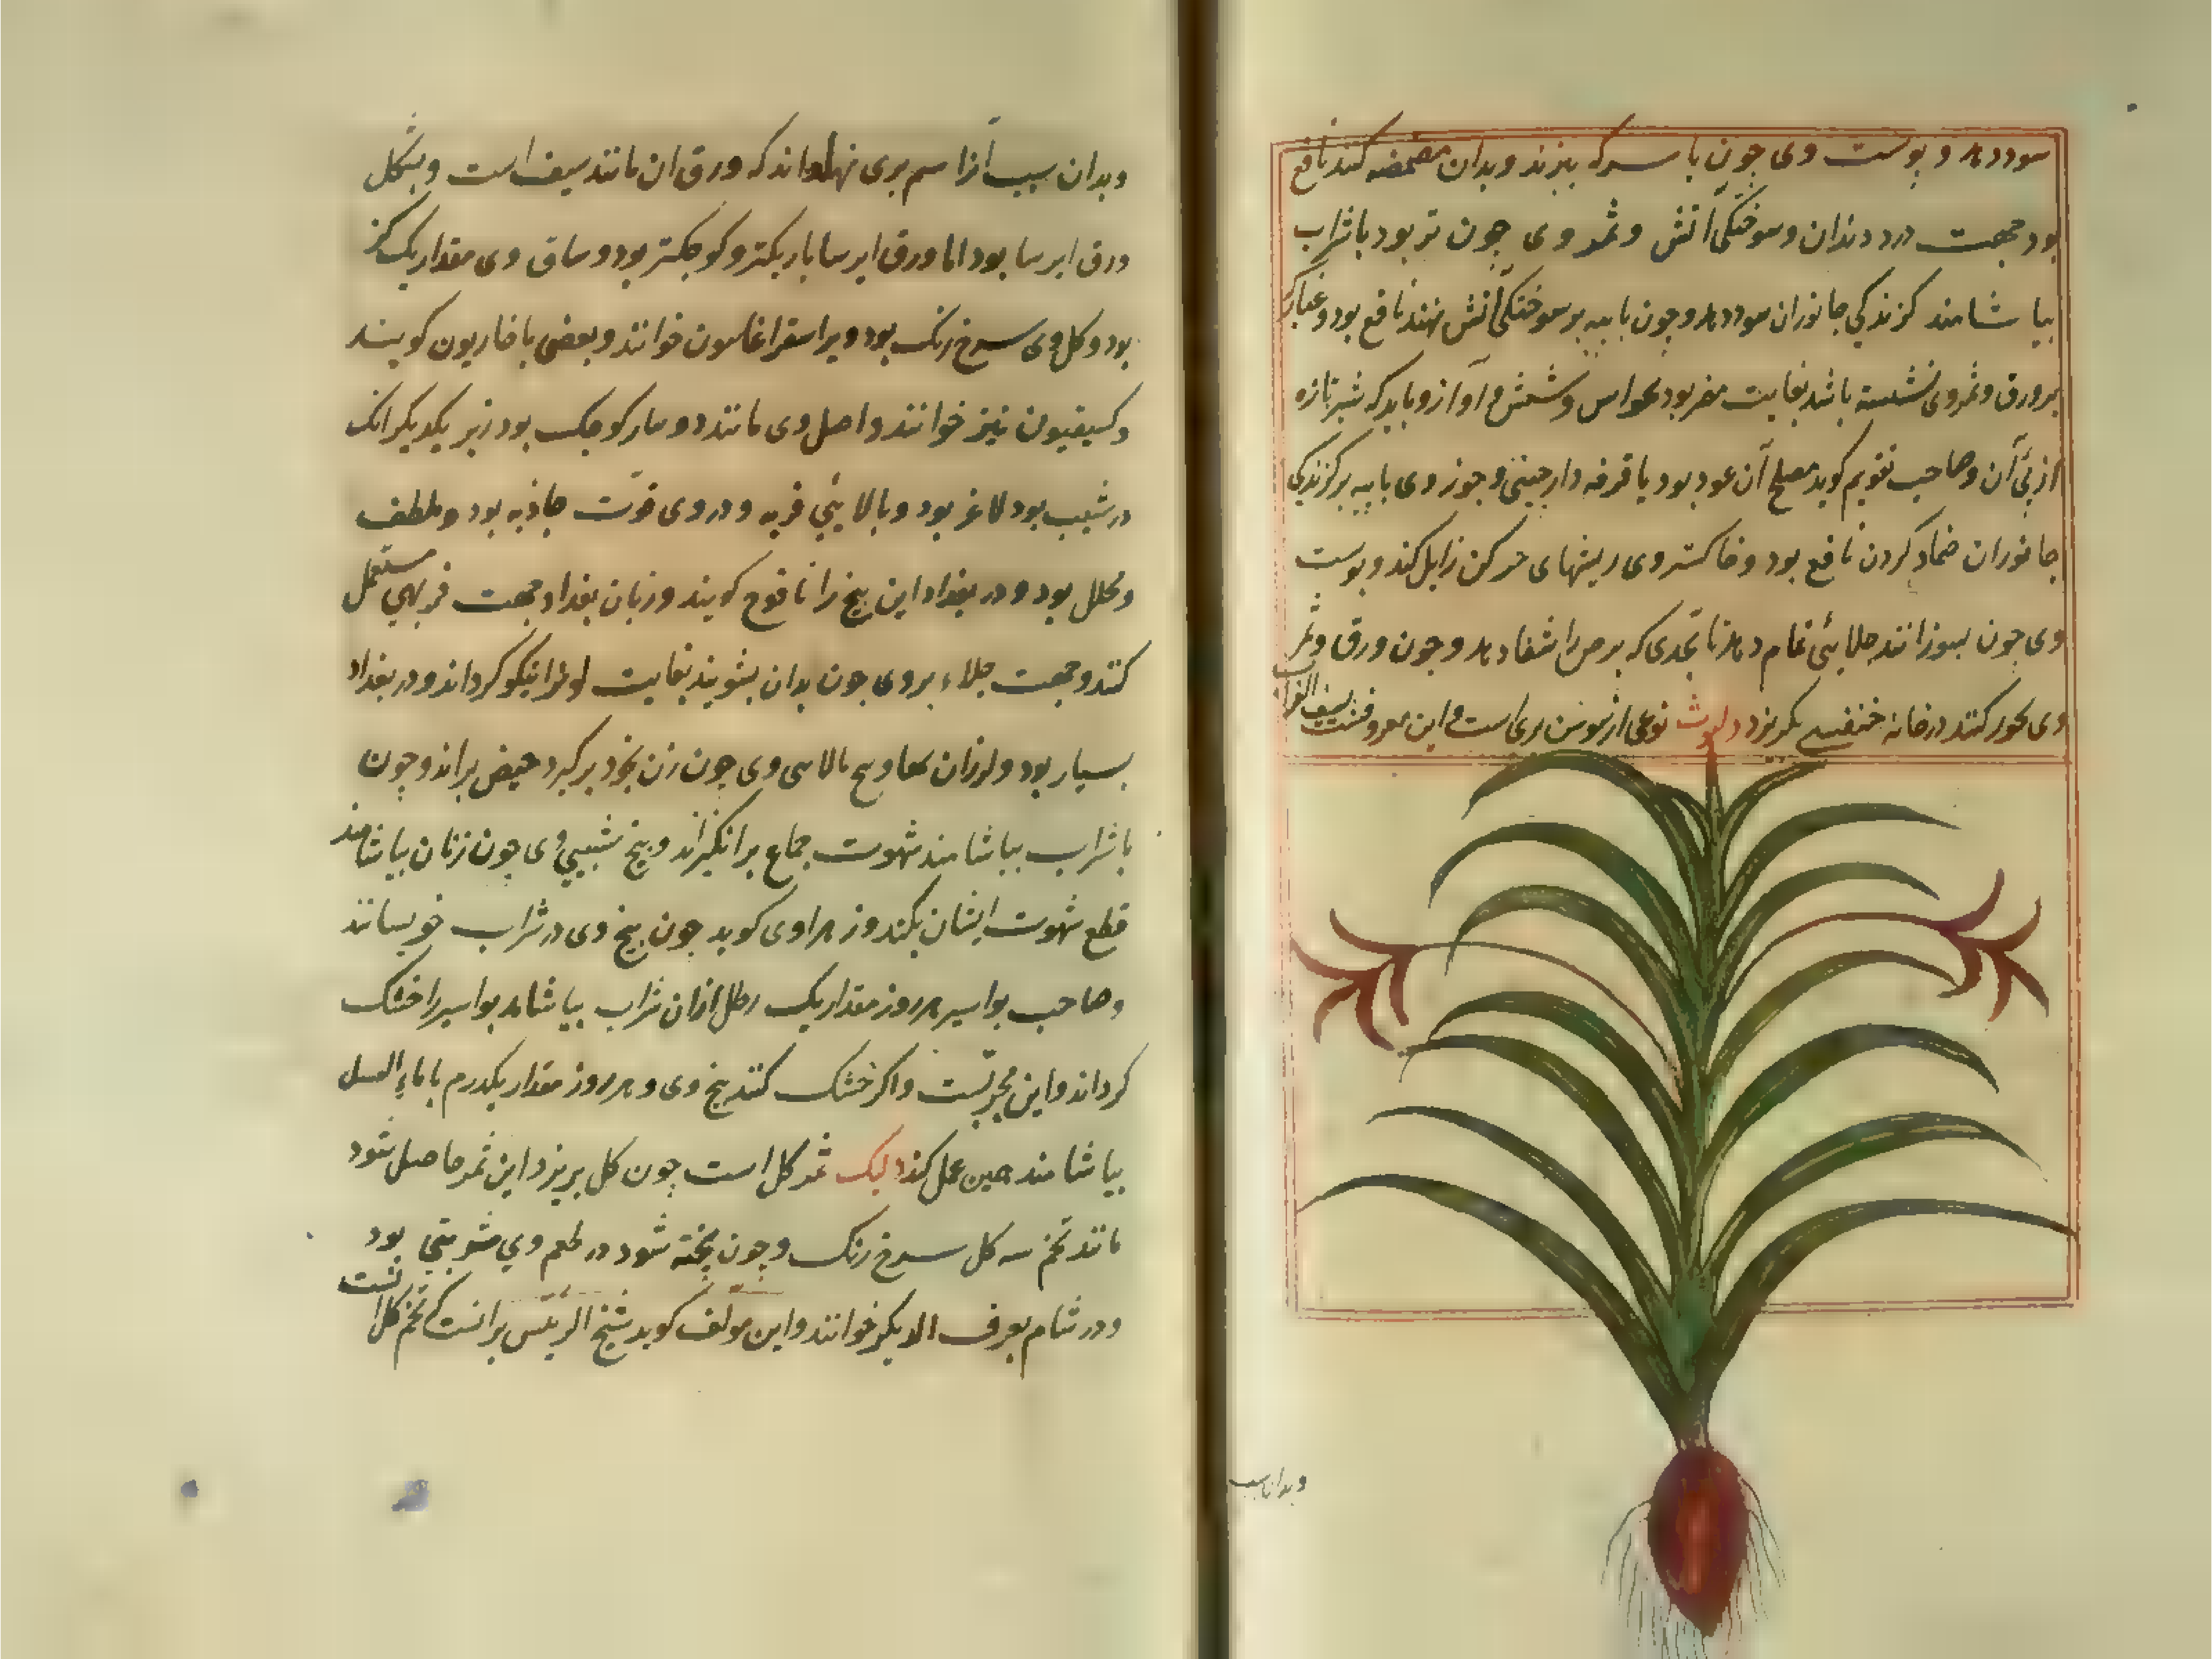 سود دهد و پوست وی چون با سرکه بپزند و بدان مضمضه کنند نافع
بود جهت درد دندان و سوختگی آتش و ثمر وی چون تر بود با شراب
بیاشامند کزندکی جانوران سود دهد و چون با پیه بر سوختکی آتش نهند نافع بود و غبار که
بر ورق و ثمر وی نشسته باشد بغایت مضر بود بحواس و شش و آواز و باید که شیر تازه
از پی آن وصاحب تقویم کوید مصلح آن عود بود یا قرفه دارچینی و جوز وی با پیه بر کزندکی
جانوران ضماد کردن نافع بود و خاکستر وی ریشهای حرکن زایل کند و پوست
وی چون بسوزانند جلایئی تمام دهد تا بحدی که برص را شفا دهد و چون ورق و ثمر
وی بخور کنند در خانه خنفسا بکریزد دلبوث نوعی از سوسن بری است و این معروفست بسیف الغراب
و بدان سبب
و بدان سبب آنرا اسم بری نهاده‌اند که ورق ان مانند سیف است و بشکل
ورق ایرسا بود اما ورق ایرسا باریکتر و کوچکتر بود و ساق وی مقدار یک کز
بود و کل وی سرخ رنک بود و یرا خوانند و بعضی ماخاریون کویند
و کسیفیون نیز خوانند و اصل وی مانند دو مار کوچک بود زیر یکدیکر انک
در شیب بود لاغر بود و بالایئی فربه و در وی قوت جاذبه بود و ملطف
و محلل بود و در بغداد این بیخ را نافوخ کویند و زنان بغداد جهت فربهی مستعمل
کنند و جهت جلاء بروی چون بدان بشویند بغایت لون را نیکو کرداند و در بغداد
بسیار بود و بیخ بالایی وی چون زن بخود برکیرد حیض براند و چون
با شراب بیاشامند شهوت جماع برانکیزاند و بیخ شیبی وی چون زنان بیاشامند
قطع شهوت ایشان بکند و زهراوی کوید چون بیخ وی در شراب خویسانند
وصاحب بواسیر هر روز مقدار یک رطل ازان شراب بیاشامد بواسیر را خشک
کرداند و این مجربست و اکر خشک کنند بیخ وی و هر روز مقدار یکدرم با ماء العسل
بیاشامند همین عمل کند دلیک ثمر کل است چون کل بریزد این ثمر حاصل شود
مانند تخم سه کل سرخ رنک و چون پخته شود در طعم وی بود
و در شام بصرم الدیک خوانند و این مؤلف کوید شیخ الرئیس برانست که تخم کل انست